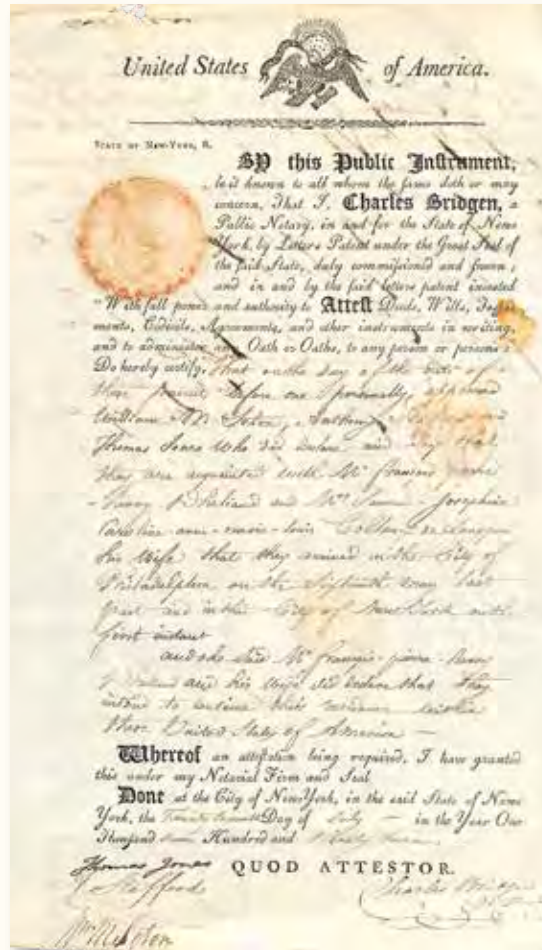 United States of America.
STATE OF NEW-YORK, ss.
BY this Public Instrument,
be it known to all whom the same doth or may
concern, That I, Charles Bridgen, a
Public Notary, in and for the State of New-
York, by Letters Patent under the Great Seal of
the said State, duly commissioned and sworn;
and in and by the said letters patent invested
"With full power and authority to Attest Deeds, Wills, Testa-
ments, Codicils, Agreements, and other instruments in writing,
and to administer any Oath or Oaths, to any person or persons:
Do hereby certify, That on the day of the date of
these presents before me personally appeared
William Anthony
Thomas Jones who did declare and say that
they are acquainted with Mr
Henry and Josephine
Caroline anne-marie-louis
his Wife that they arrived in the City of
Philadelphia on the
past and in this City of New York on the
first instant
and the said Mr françois-pierre-henry
and his Wife did declare that they
intend to continue their residence within
these United States of America —
Whereof an attestation being required, I have granted
this under my Notarial Firm and Seal
Done at the City of New York, in the said State of New
York, the Day of July in the Year One
Thousand Hundred and Ninety
Thomas Jones QUOD ATTESTOR.
Charles Bridgen